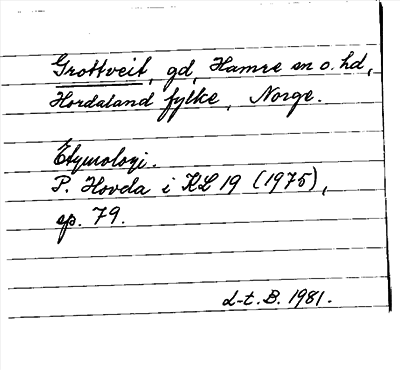 Grottveit, gd, Hamre sn o. hd,
Hordaland fylke, Norge.
Etymologi.
P. Hovda i KL 19 (1975),
sp. 79.
L-t. B. 1981.